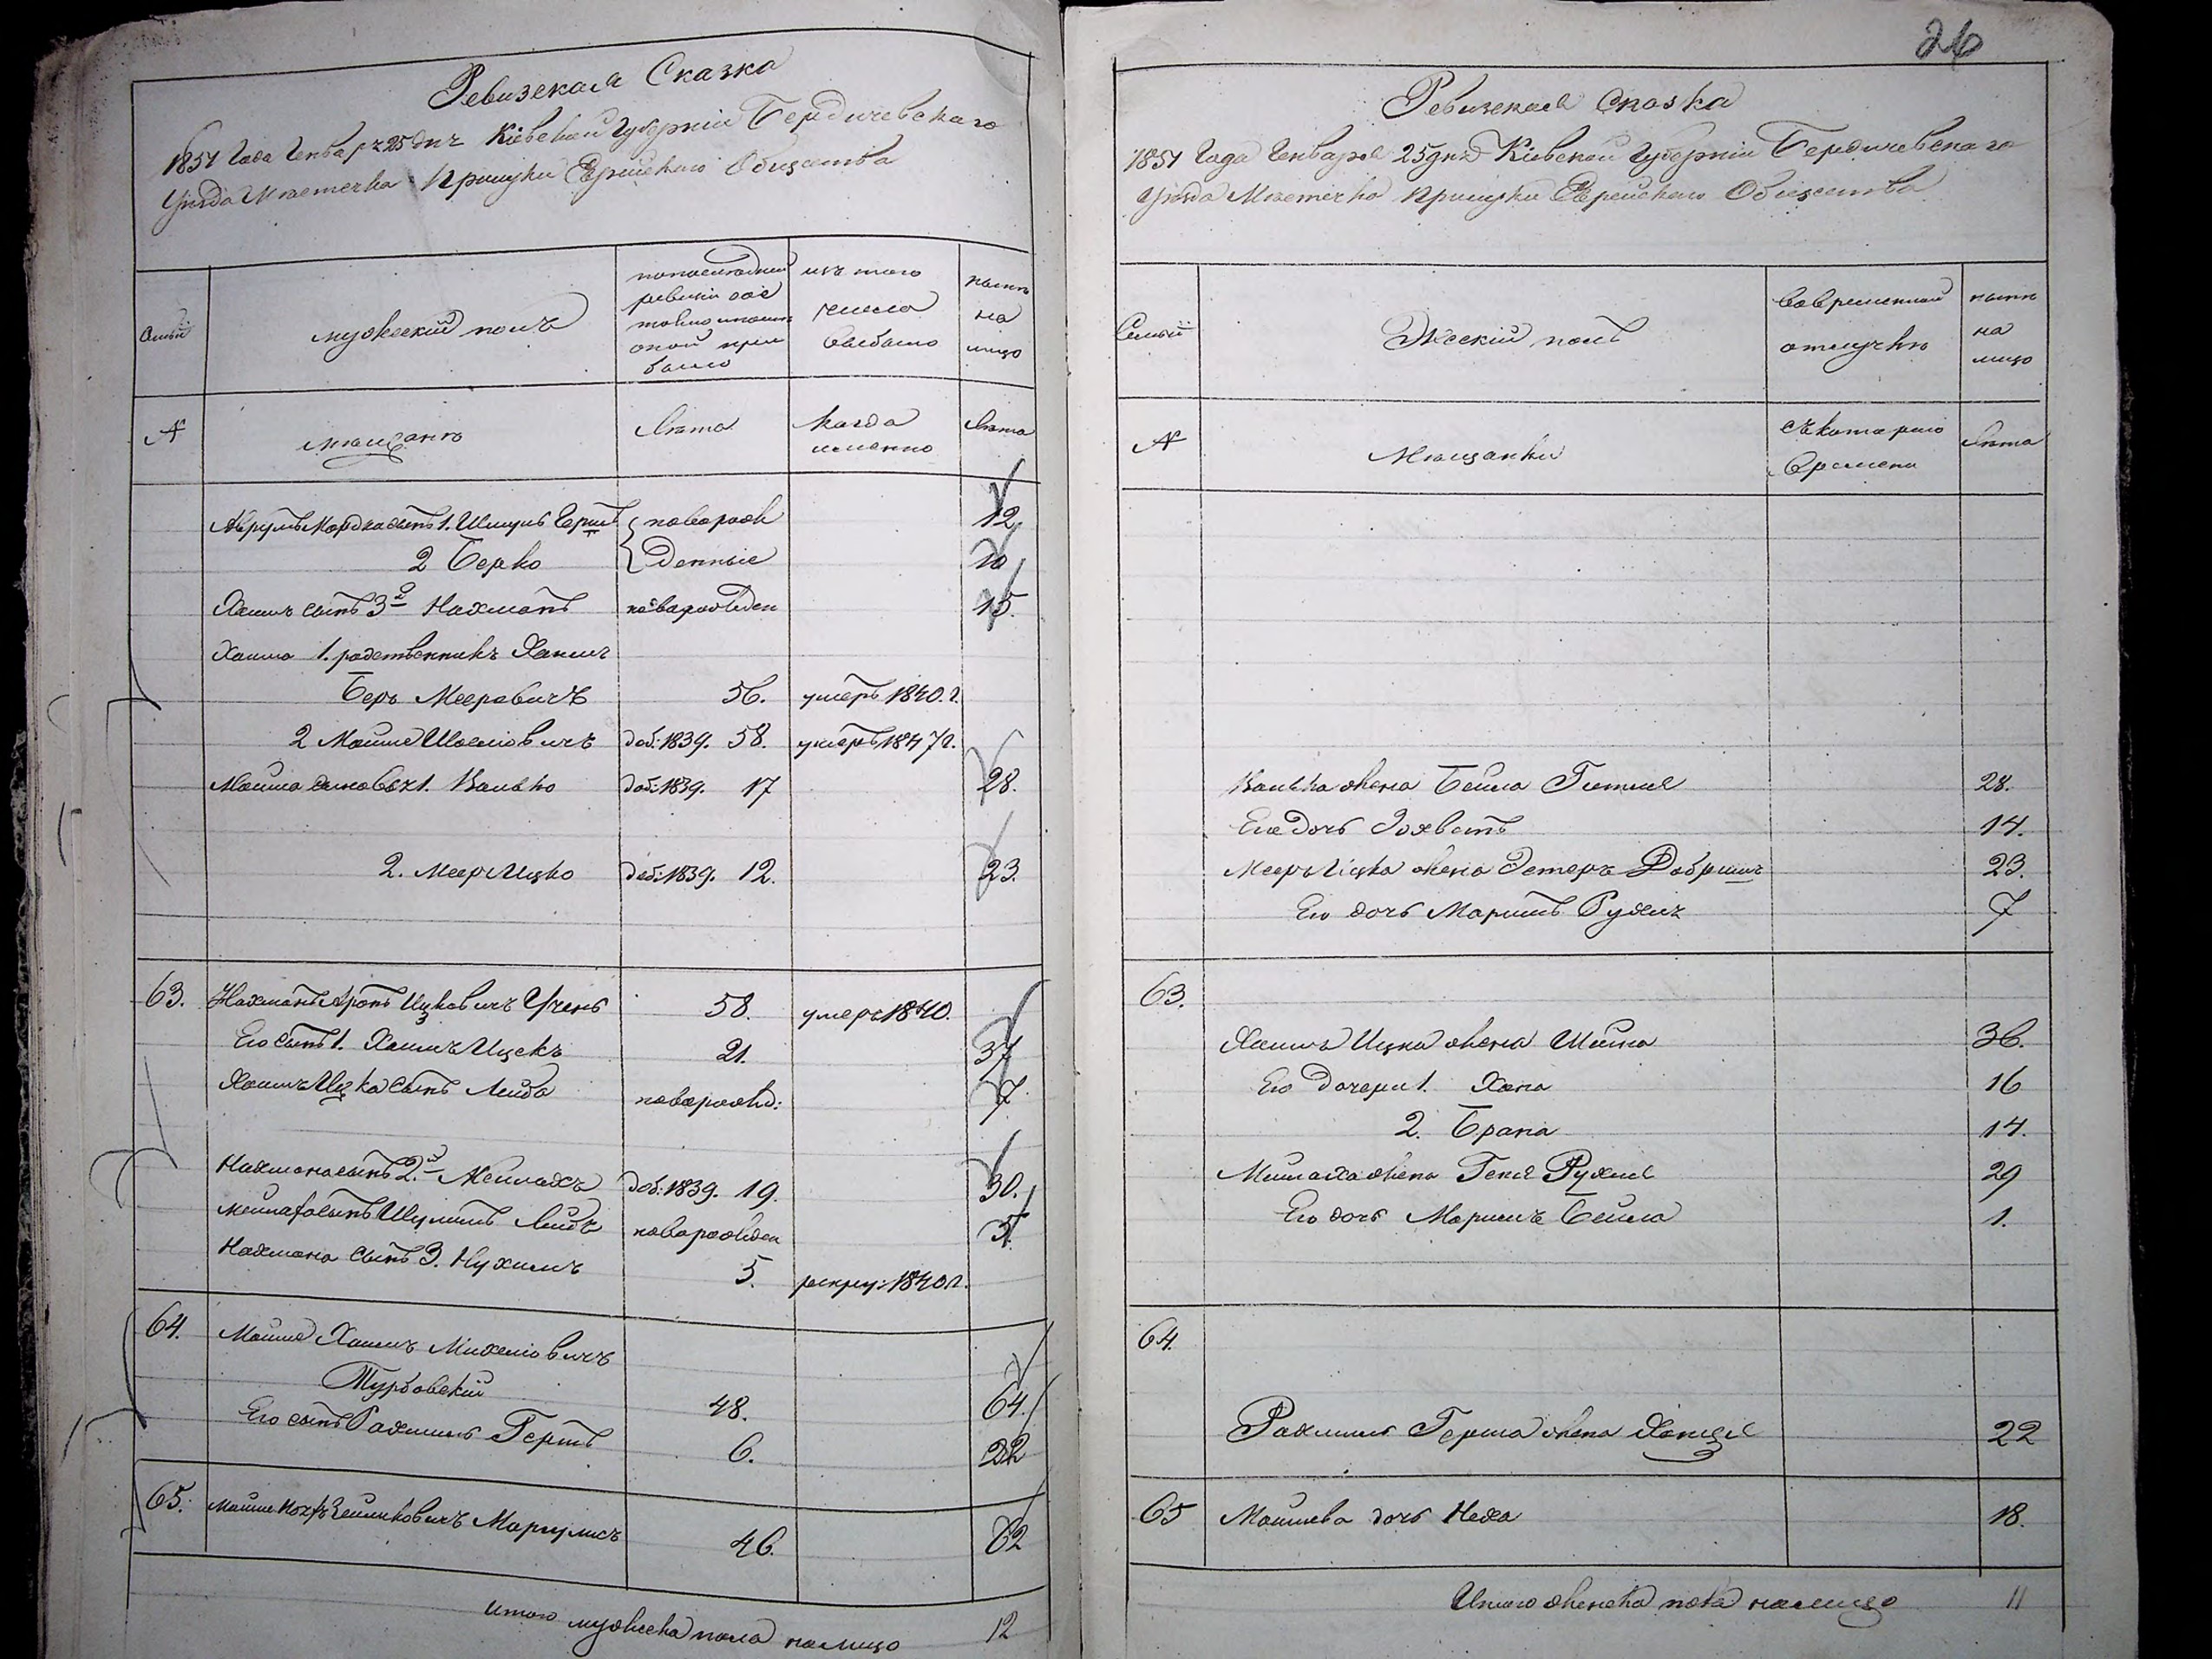 Ревизская Сказка
1851 Года Генваря 25 дня Кіевской Губерніи Бердичевскаго
Уѣзда Мѣстечка Прилуки Еврейскаго Общества
Семьи
мужескій полъ
по последней
ревизіи сос
тояло и после
оной при
было
изъ того
числа
выбыло
ныне
на
лицо
№
мещанъ
Лѣта
Когда
именно
Лѣта
Аврумъ Мордка сынъ 1. Шмуль Герш новорож 12
2 Берко денные 10
Хаимъ сынъ 3й Нахманъ новорожден 15.
Хаима 1. родственникъ Хаимъ
Беръ Мееровичъ 56. умеръ 1840. г.
2 Мойше Шаеліовичъ доб: 1839. 58. умеръ 1847 г.
Мойша сыновья 1. Волько доб: 1839. 17 28.
2. Меер Ицко доб: 1839. 12. 23.
63. Нахманъ Аронъ Ицковичъ Учень 58. умеръ 1840.
Его сынъ 1. Хаимъ Ицекъ 21. 37
Хаимъ Ицка сынъ Лейба новорожд: 7.
Нахмана сынъ 2.й Мейлахъ доб: 1839. 19. 30.
Мейлаха сынъ Шулимъ Лейбъ новорожден 5.
Нахмана сынъ 3. Нухимъ 5. рекру: 1840 г.
64. Мойше Хаимъ Михеліовичъ
Турбовскій 48. 64.
Его сынъ Рахмиль Гершъ 6. 22
65. Мойше Зейликовичъ Маргулисъ 46. 62
Итого мужеска пола налицо 12
26
Ревизская Сказка
1851 Года Генваря 25 дня Кіевской Губерніи Бердичевскаго
Уѣзда Мѣстечка Прилуки Еврейскаго Общества
Семьи
Женскій полъ
Вовременной
отлучке
ныне
на
лицо
№
Мещанки
съ котораго
Времени
Лѣта
Волька жена Бейла Гитля 28.
Его дочь Йохветъ 14.
Меер Ицка жена Эстеръ Добришъ 23.
Его дочь Маримъ Рухль 7
63.
Хаимъ Ицка жена Шейва 36.
Его дочери 1. Хана 16
2. Брана 14.
Мейлаха жена Геня Рухля 29
Его дочь Маримъ Бейла 1.
64.
Рахмиль Герша жена Ханця 22
65 Мойшева дочь Неха 18.
Итого женска пола налицо 11